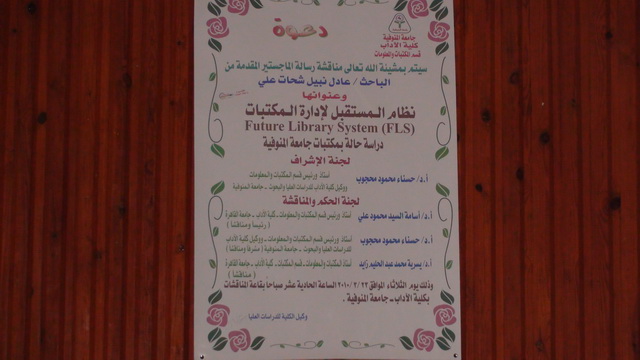 دعوة
جامعة المنوفية
كلية الآداب
قسم المكتبات والمعلومات
سيتم بمشيئة الله تعالى مناقشة رسالة الماجستير المقدمة من
الباحث / عادل نبيل شحات علي
وعنوانها
نظام المستقبل لإدارة المكتبات
Future Library System (FLS)
دراسة حالة بمكتبات جامعة المنوفية
لجنة الإشراف
أ.د/ حسناء محمود محجوب
أستاذ ورئيس قسم المكتبات والمعلومات
ووكيل كلية الآداب للدراسات العليا والبحوث - جامعة المنوفية
لجنة الحكم والمناقشة
أ.د/ أسامة السيد محمود علي
أستاذ ورئيس قسم المكتبات والمعلومات - كلية الآداب - جامعة القاهرة
( رئيسا ومناقشا )
أ.د/ حسناء محمود محجوب
أستاذ ورئيس قسم المكتبات والمعلومات - ووكيل كلية الآداب
للدراسات العليا والبحوث - جامعة المنوفية ( مشرفا ومناقشا )
أ.د/ يسرية محمد عبد الحليم زايد
أستاذ المكتبات والمعلومات - قسم المكتبات - كلية الآداب - جامعة القاهرة
( مناقشا )
وذلك يوم الثلاثاء الموافق ٢٠١٠/٣/٢٣ الساعة الحادية عشر صباحا بقاعة المناقشات
بكلية الآداب - جامعة المنوفية .
وكيل الكلية للدراسات العليا